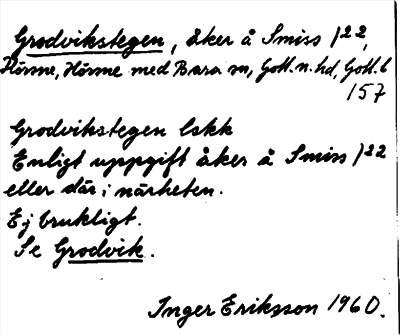 Grodvikstegen, åker å Smiss 1²²,
Hörsne, Hörsne med Bara sn, Gotl. n. hd, Gotl. l
157
Grodvikstegen lskk
Enligt uppgift åker å Smiss 1²²
eller där i närheten.
Ej brukligt.
Se Grodvik.
Inger Eriksson 1960.